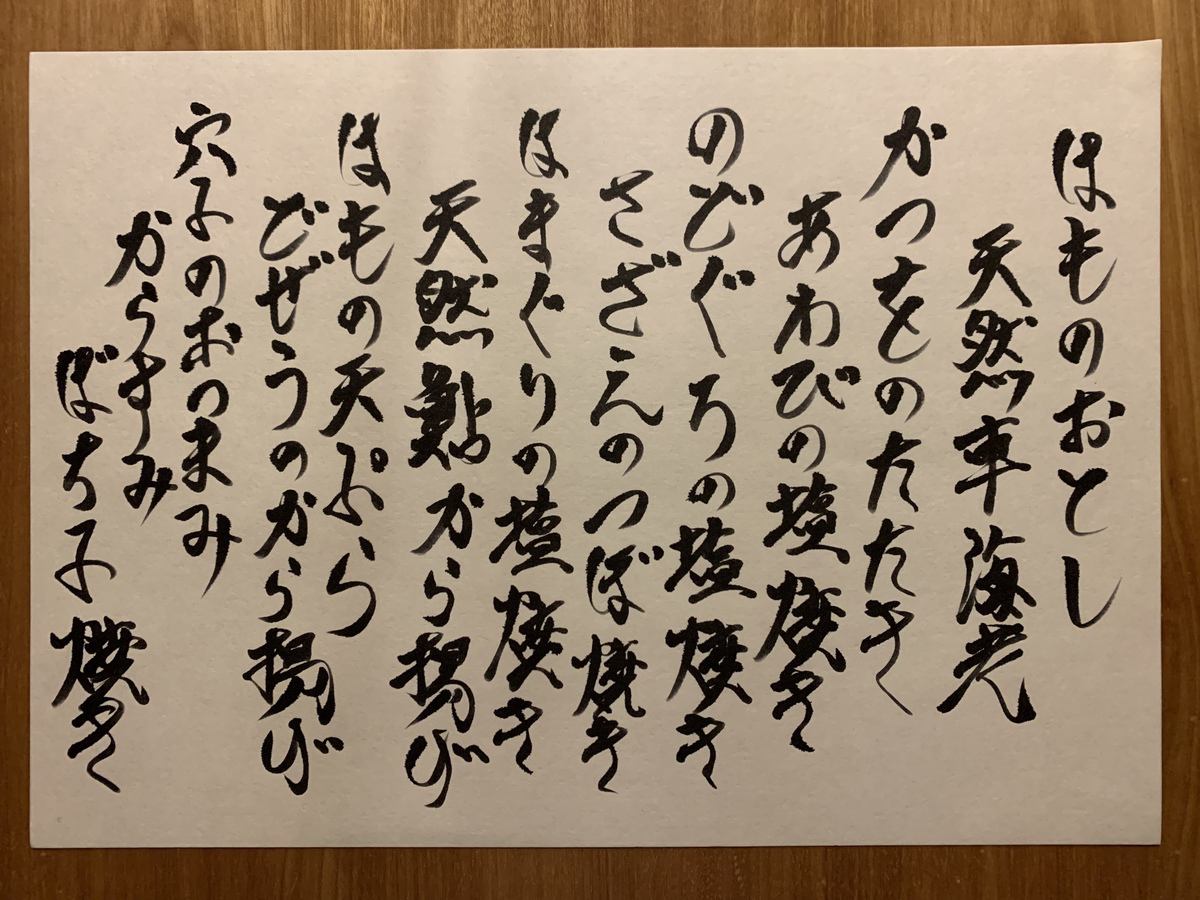 はものおとし
天然車海老
かつをのたたき
あわびの塩焼き
のどぐろの塩焼き
さざえのつぼ焼き
はまぐりの塩焼き
天然鮎から揚げ
はもの天ぷら
どぜうのから揚げ
穴子のおつまみ
からすみ
ばち子焼き